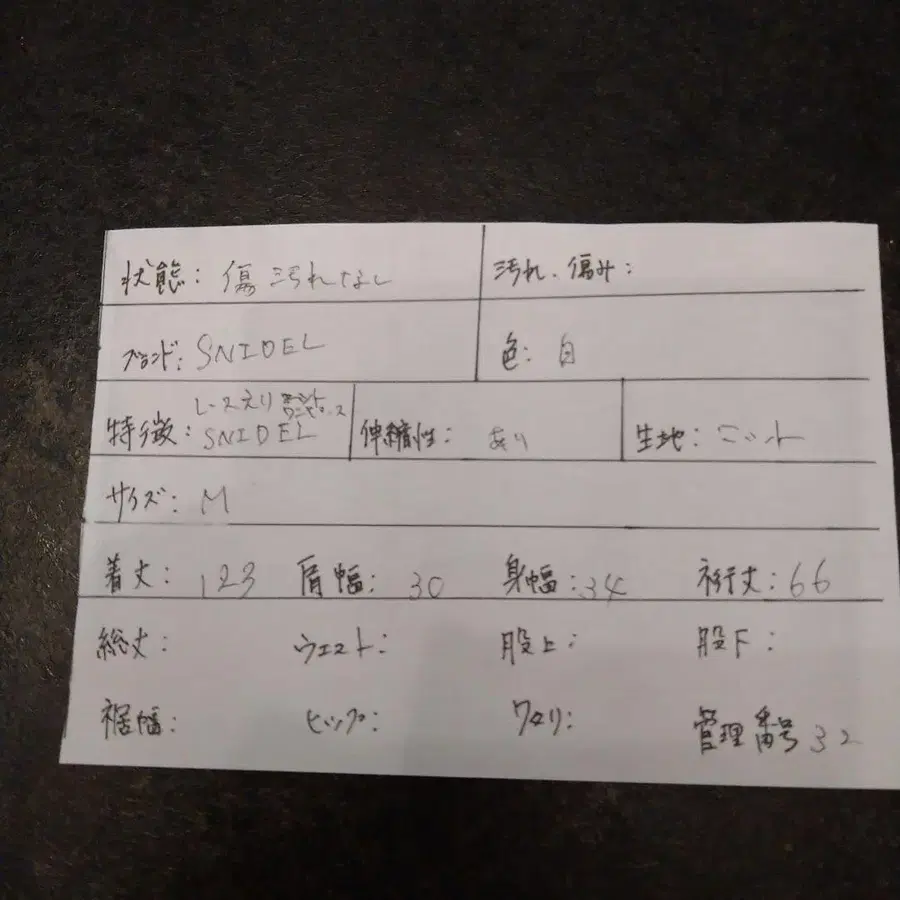 状態: 傷汚れなし 汚れ、傷み:
ブランド: SNIDEL 色: 白
レースえり
ワンピース
特徴: SNIDEL 伸縮性: あり 生地: ニット
サイズ: M
着丈: 123 肩幅: 30 身幅: 34 裄丈: 66
総丈: ウエスト: 股上: 股下:
裾幅: ヒップ: ワタリ: 管理番号 32